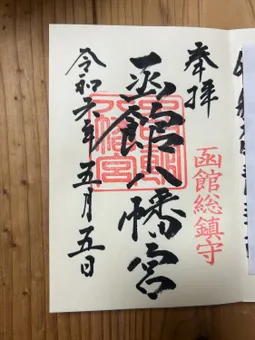 奉拝
函館総鎮守
函館八幡宮
令和六年五月五日